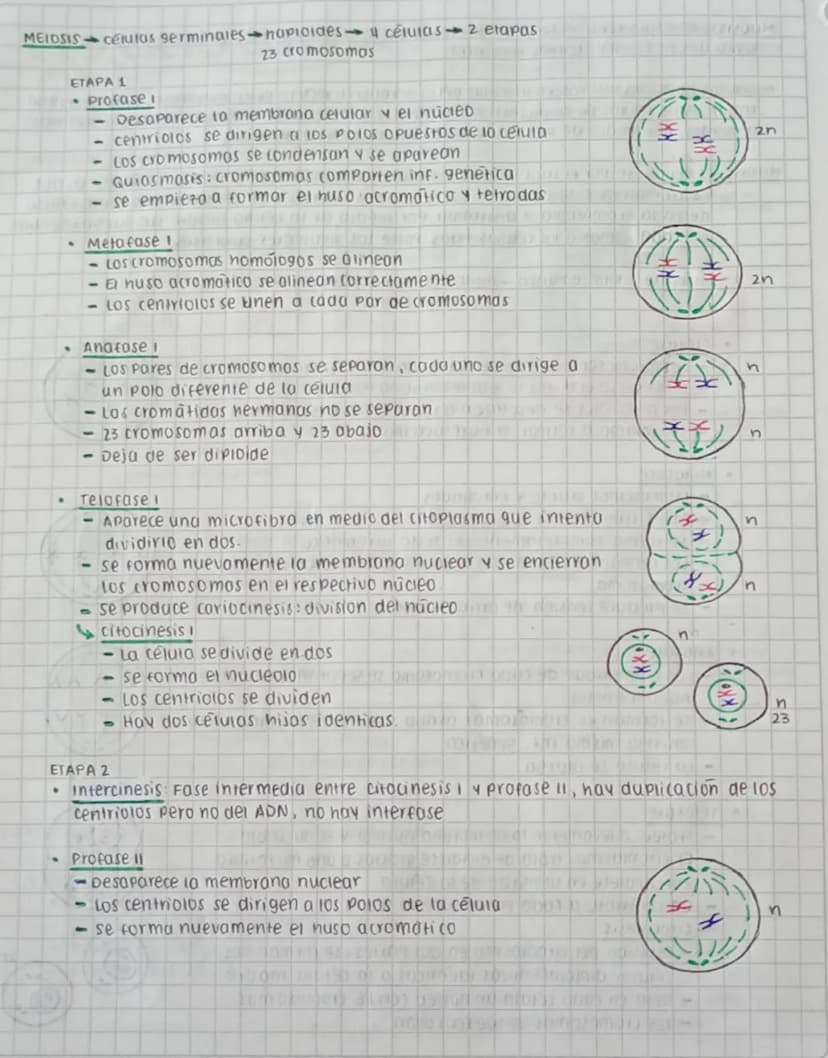 MEIOSIS → células germinales → haploides → 4 células → 2 etapas
23 cromosomas
ETAPA 1
• Profase I
- Desaparece la membrana celular y el núcleo
- centriolos se dirigen a los polos opuestos de la célula
- Los cromosomas se condensan y se aparean
- Quiasmasis: cromosomas comparten inf. genética
- se empieza a formar el huso acromático y tetrodas
2n
• Metafase I
- Los cromosomas homólogos se alinean
- El huso acromático se alinean correctamente
- Los centriolos se unen a cada par de cromosomas
2n
• Anafase I
- Los pares de cromosomas se separan, cada uno se dirige a
un polo diferente de la célula
- Las cromátidas hermanas no se separan
- 23 cromosomas arriba y 23 abajo
- Deja de ser diploide
n
n
• Telofase I
- Aparece una microfibra en medio del citoplasma que intenta
dividirlo en dos.
- se forma nuevamente la membrana nuclear y se encierran
los cromosomas en el respectivo núcleo
- se produce cariocinesis: división del núcleo
n
n
↳ citocinesis I
- La célula se divide en dos
- se forma el nucleolo
- Los centriolos se dividen
- Hay dos células hijas identicas.
n
n
23
ETAPA 2
• Intercinesis: Fase intermedia entre citocinesis I y profase II, hay duplicación de los
centriolos pero no del ADN, no hay interfase
• Profase II
- Desaparece la membrana nuclear
- Los centriolos se dirigen a los polos de la célula
- se forma nuevamente el huso acromático
n